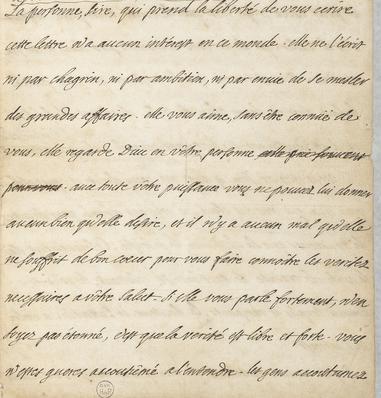 La personne, Sire, qui prend la liberté de vous ecrire
cette lettre n'a aucun interest en ce monde. elle ne l'ecrit
ni par chagrin, ni par ambition, ni par envie de se mesler
des grandes affaires. elle vous aime, sans être connüe de
vous, elle regarde Dieu en vôtre personne
avec toute vôtre puissance vous ne pouvez lui donner
aucun bien qu'elle desire, et il n'y a aucun mal qu'elle
ne souffrit de bon cœur pour vous faire connoitre les veritez
necessaires a vôtre salut. Si elle vous parle fortement, n'en
soyez pas étonné, c'est que la verité est libre et forte. vous
n'estes gueres accoutumé a l'entendre. les gens accoutumez